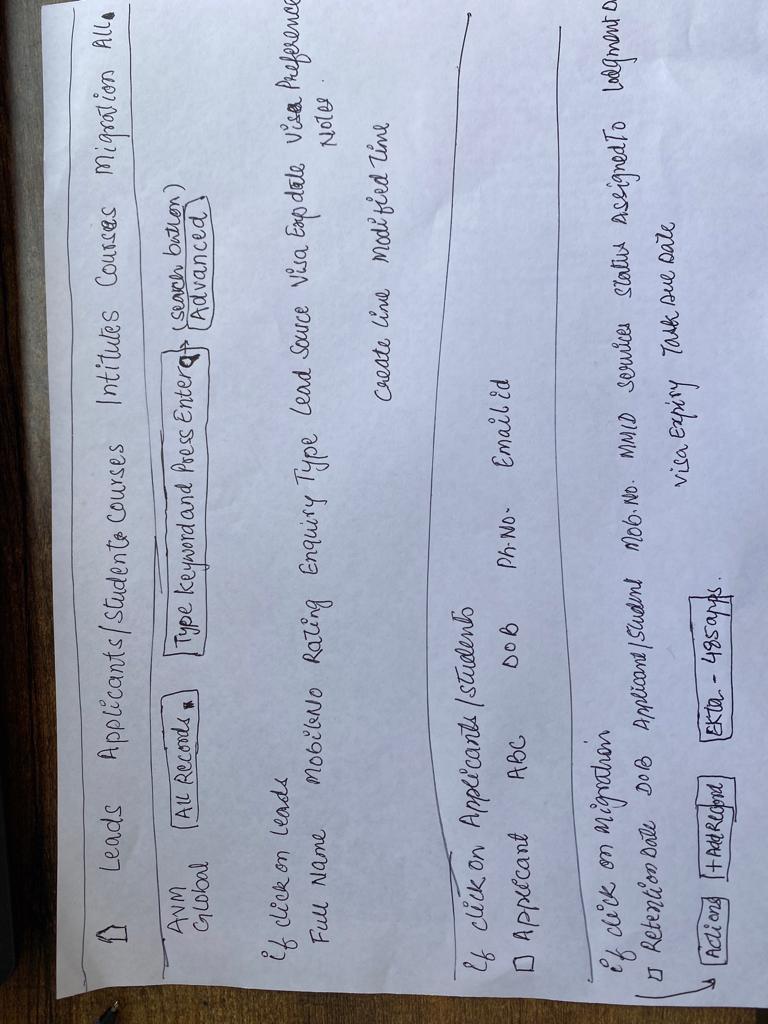 Leads Applicants/Students Courses Intitutes Courses Migration All
AVM Global All Records Type keyword and Press Enter (search button) Advanced
if click on leads
Full Name Mobile No Rating Enquiry Type Lead Source Visa Exp date Visa Preference Notes.
create time Modified time
if click on Applicants/students
Applicant ABC DOB Ph.No. Email id
if click on Migration
Retention Date DOB Applicant/Student Mob.No. MMID services status Assigned To Lodgment D
visa Expiry Task Due Date
Actions + Add Record Ekta - 485 apps.